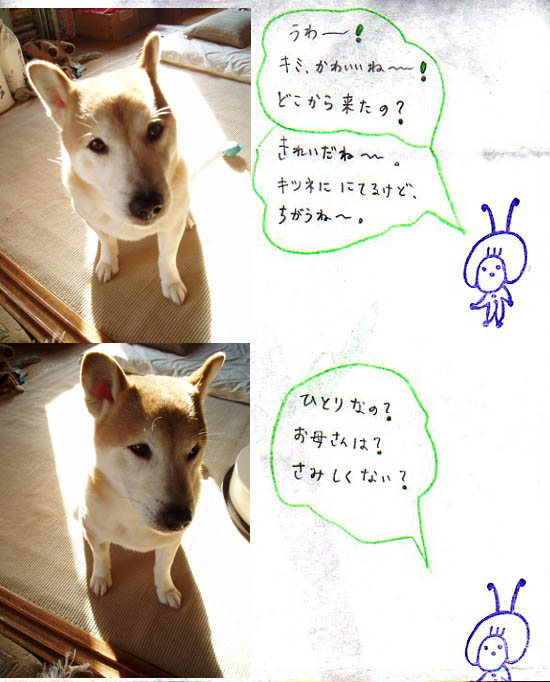 うわー！
キミ、かわいいね〜〜！
どこから来たの？
きれいだね〜〜。
キツネに にてるけど、
ちがうね〜。
ひとりなの？
お母さんは？
さみしくない？